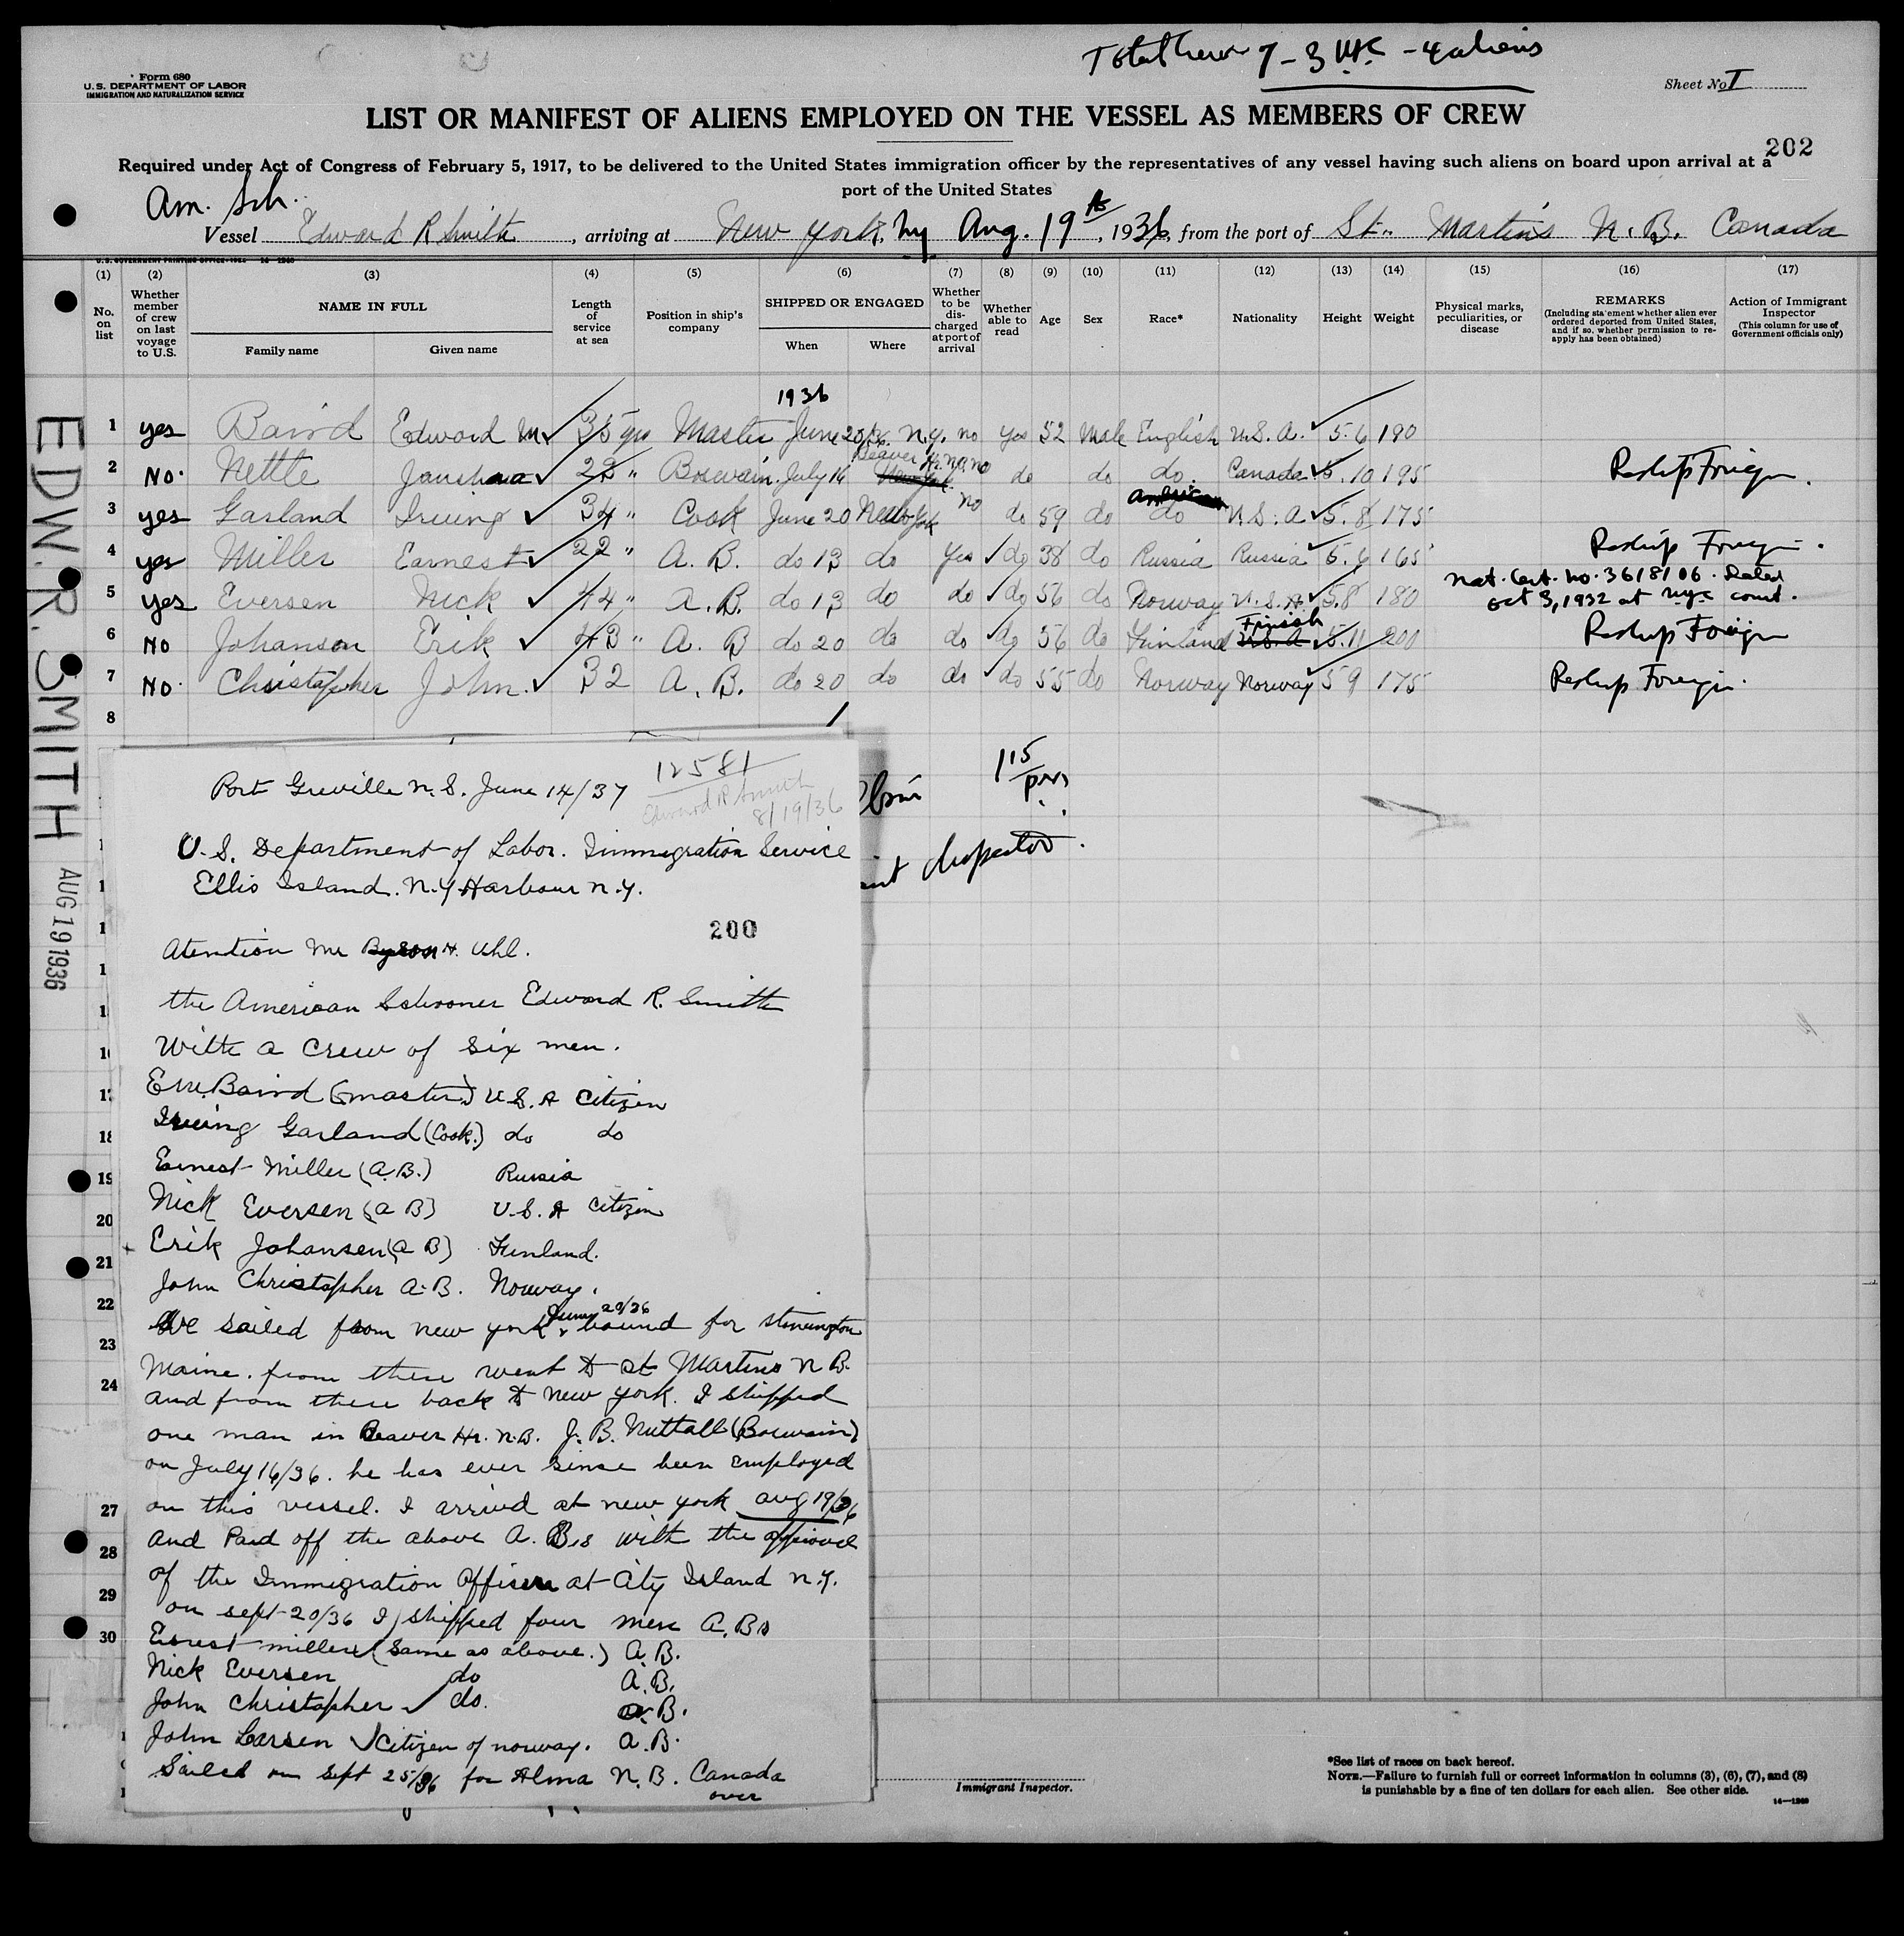 Total Crew 7 - 3 U.S.C. - 4 aliens
Form 680
U. S. DEPARTMENT OF LABOR
IMMIGRATION AND NATURALIZATION SERVICE
Sheet No. I
LIST OR MANIFEST OF ALIENS EMPLOYED ON THE VESSEL AS MEMBERS OF CREW
202
Required under Act of Congress of February 5, 1917, to be delivered to the United States immigration officer by the representatives of any vessel having such aliens on board upon arrival at a
port of the United States
Am. Sch.
Vessel Edward R Smith, arriving at New York, Ny Aug. 19th, 1936, from the port of St. Martins N. B. Canada
U. S. GOVERNMENT PRINTING OFFICE
(1) (2) (3) (4) (5) (6) (7) (8) (9) (10) (11) (12) (13) (14) (15) (16) (17)
No. on list
Whether member of crew on last voyage to U.S.
NAME IN FULL
Family name Given name
Length of service at sea
Position in ship's company
SHIPPED OR ENGAGED
When Where
Whether to be discharged at port of arrival
Whether able to read
Age
Sex
Race*
Nationality
Height
Weight
Physical marks, peculiarities, or disease
REMARKS
(Including statement whether alien ever ordered deported from United States, and if so, whether permission to reapply has been obtained)
Action of Immigrant Inspector
(This column for use of Government officials only)
1936
1 yes Baird Edward M 35 yrs Master June 20/36 N.y. no yes 52 Male English U.S.A. 5.6 190
2 No. Nettle 22 " Boswain July 16 Beaver Hr. N.B. no do do do Canada 5.10 195 Reship Foreign.
3 yes Garland Irving 34 " Cook June 20 New York no do 59 do do U.S.A 5.8 175
4 yes Miller Earnest 22 " A. B. do 13 do Yes do 38 do Russia Russia 5.6 165 Reship Foreign.
5 yes Eversen Nick 44 " A. B. do 13 do do do 56 do Norway U.S.A. 5.8 180 Nat. Cert. No. 3618106. Dated
Oct 3, 1932 at NYC court.
6 No Johanson Erik 43 " A. B do 20 do do do 56 do Finland Finish 5.11 200 Reship Foreign
7 No. Christopher John. 32 A. B. do 20 do do do 55 do Norway Norway 5 9 175 Reship Foreign.
8
EDW. R. SMITH AUG 19 1936
115
pm
Inspector.
12581
Edward R Smith
8/19/36
Port Greville N. S. June 14/37
U. S. Department of Labor. Immigration Service
Ellis Island. N.Y Harbour N.Y.
200
Atention Mr Byron H. Uhl.
the American Schooner Edward R. Smith
With a crew of six men.
E M. Baird (master) U.S. A citizen
Irving Garland (Cook.) do do
Ernest Miller (A.B.) Russia
Nick Eversen (A B) U.S. A citizen
Erik Johansen (A B) Finland.
John Christopher A.B. Norway.
We sailed from New york June 20/36 bound for Stonington
Maine. from there went to St Martins N B.
and from there back to New york. I shipped
one man in Beaver Hr. N.B. J. B. Nuttall (Boswain)
on July 16/36. he has ever since been employed
on this vessel. I arrived at New york aug 19/36
and Paid off the above A. B.s with the approval
of the Immigration Officers at City Island N.Y.
on sept 20/36 I shipped four men A. Bs
Ernest Miller (same as above.) A. B.
Nick Eversen do A. B.
John Christopher do. A. B.
John Larsen citizen of norway. A. B.
Sailed on Sept 25/36 for Alma N. B. Canada
over
19
20
21
22
23
24
27
28
29
30
Immigrant Inspector.
*See list of races on back hereof.
NOTE.—Failure to furnish full or correct information in columns (3), (6), (7), and (8)
is punishable by a fine of ten dollars for each alien. See other side.